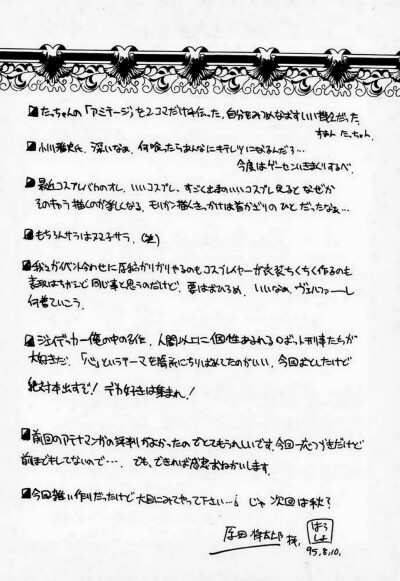 たっちゃんの「アミテージ」を2コマだけ手伝った。自分をみつめなおすいい機会だった。
すまん たっちゃん。
小川雅史氏、深いなぁ。何喰ったらあんなにキテレツになるんだろ…
今度はゲーセンいきまくりするべ。
最近コスプレバカのオレ。いいコスプレ、すごく出来のいいコスプレ見るとなぜか
そのキャラ描くのが楽しくなる。モリガン描くきっかけは首かざりのひとだったなぁ…
もちろんサラはヌマ子サラ。(笑)
我らがイベント合わせに原稿がりがりやるのもコスプレイヤーが衣装ちくちく作るのも
表現はちがうど同じ事と思うのだけど。要はおひろめ。いいなぁ、ヴェルファーレ
何着ていこう。
ジェイデッカー俺の中の名作。人間以上に個性あふれるロボット刑事たちが
大好きだ。「心」というテーマを随所にちりばめてたのがいい。今回おとしたけど
絶対本出すぞ! デカ好きは集まれ!
前回のアテナマンガの評判がよかったのでとてもうれしいです。今回一応つづきだけど
前ほどキしてないので…. でも、できれば感想おねがいします。
今回雑い作りだったけど大目にみてやって下さい…。じゃ 次回は秋?
原田将太郎 拝.
はら
しょ
95.8.10.